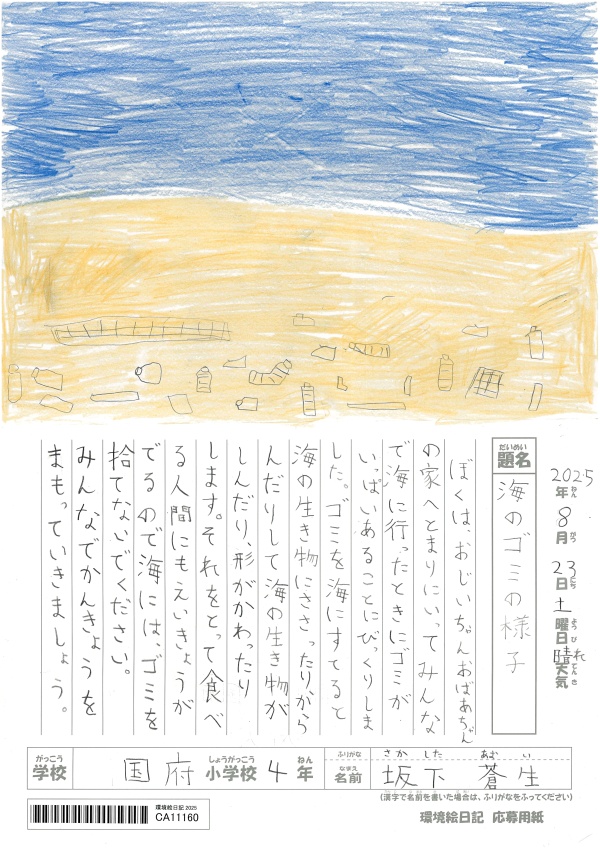 2025年8月23日土曜日晴れ天気
ねん がつ にち ようび てんき
だいめい
題名
海のゴミの様子
ぼくは、おじいちゃんおばあちゃん
の家へとまりにいってみんな
で海に行ったときにゴミが
いっぱいあることにびっくりしま
した。ゴミを海にすてると
海の生き物にささったりから
んだりして海の生き物が
しんだり、形がかわったり
します。それをとって食べ
る人間にもえいきょうが
でるので海には、ゴミを
捨てないでください。
みんなでかんきょうを
まもっていきましょう。
がっこう しょうがっこう ねん
学校 国府小学校4年
ふりがな さかした あおい
なまえ
名前 坂下蒼生
(漢字で名前を書いた場合は、ふりがなをふってください)
環境絵日記 2025
CA11160
環境絵日記 応募用紙